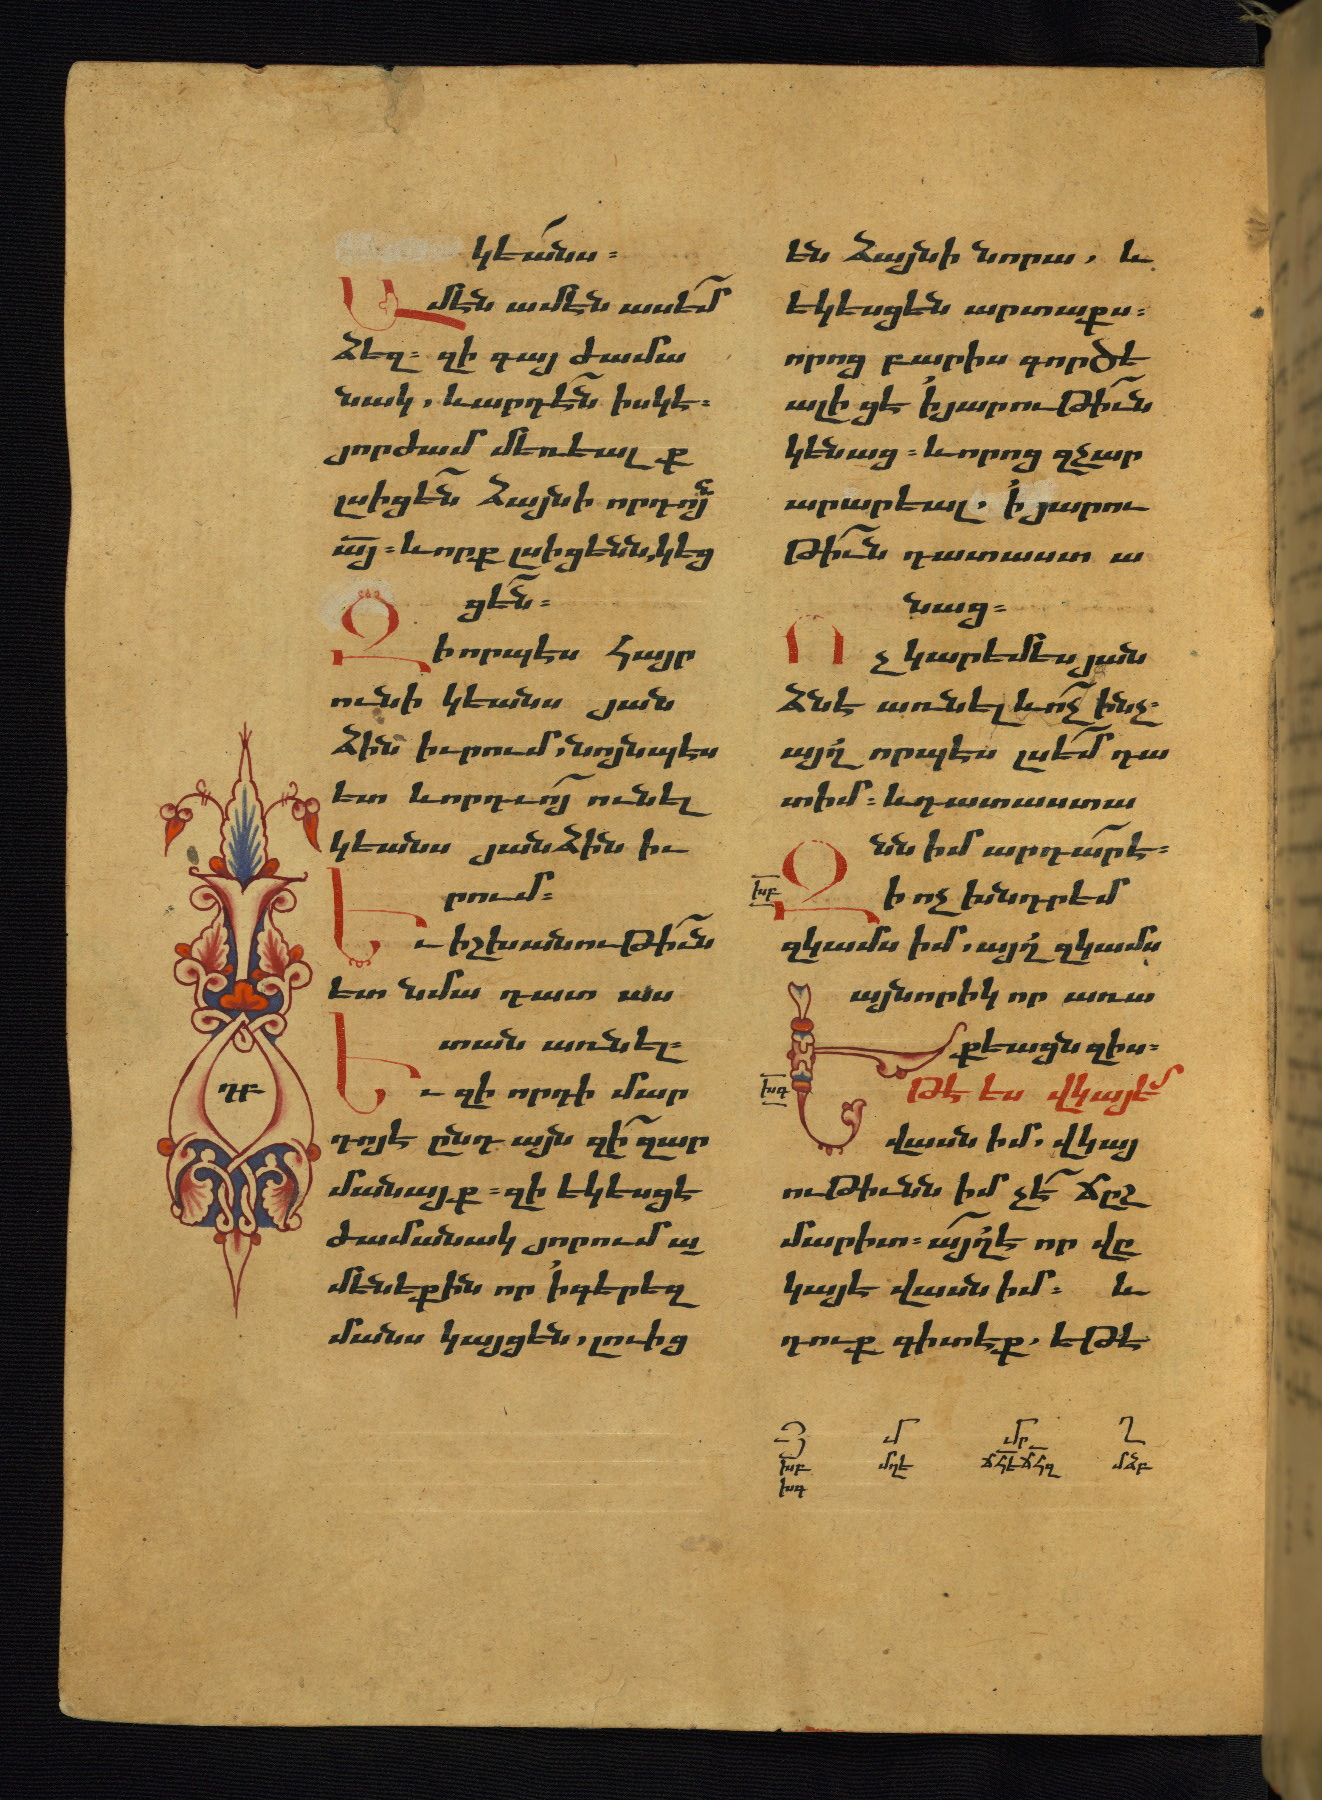 կեանս։
Ամէն ամէն ասեմ
ձեզ։ զի գայ ժամա
նակ, և արդէն իսկ է։
յորժամ մեռեալք
լսիցեն ձայնի որդւոյն
այ։ և որք լսիցենն, կեց
ցեն։
Զի որպէս հայր
ունի կեանս յան
ձին իւրում, նոյնպէս
ետ և որդւոյ ունել
կեանս յանձին իւ
րում։
Եւ իշխանութիւն
ետ նմա դատ աս
տան առնել։
Եւ զի որդի մար
դոյ է ընդ այն զի զար
մանայք։ զի եկեսցէ
ժամանակ յորում ա
մենեքին որ ի գերեզ
մանս կայցեն, լուից
դբ
են ձայնի նորա, և
եկեսցեն արտաքս։
որոց բարիս գործե
ալ իցէ ի յարութիւն
կենաց։ և որոց զչար
արարեալ, ի յարու
թիւն դատաստ ա
նաց։
Ոչ կարեմ ես յան
ձնէ առնել և ոչ ինչ։
այղ որպէս լսեմ դա
տիմ։ և դատաստա
նն իմ արդար է։
Զի ոչ խնդրեմ
զկամս իմ, այղ զկամս
այնորիկ որ առա
քեացն զիս։
Թէ ես վկայեմ
վասն իմ, վկայ
ութիւնն իմ չէ ճըշ
մարիտ։ այղ է որ վը
կայէ վասն իմ։ և
դուք գիտէք, եթէ
խբ
խգ
Յ մ մր Ղ
խբ մղէ ճհե ճհզ մձբ
խգ